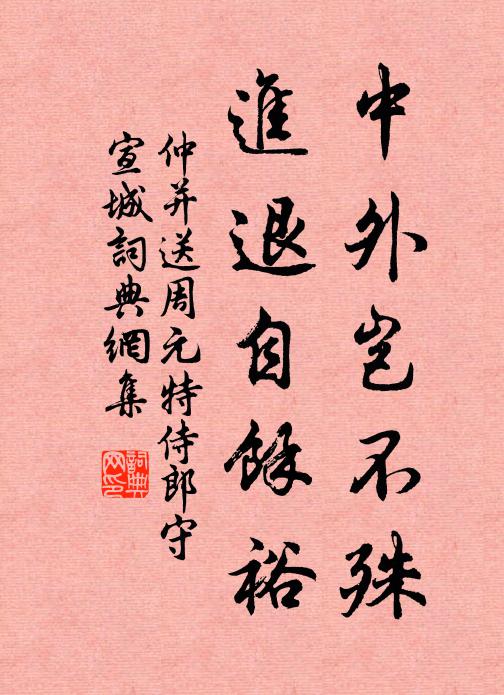 中外岂不殊
進退自餘裕
仲并送周元特侍郎守
宣城詞典網集
詞典
网印